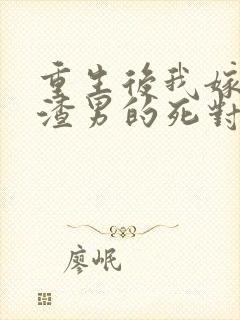 重生後我嫁
渣男的死對
廖岷